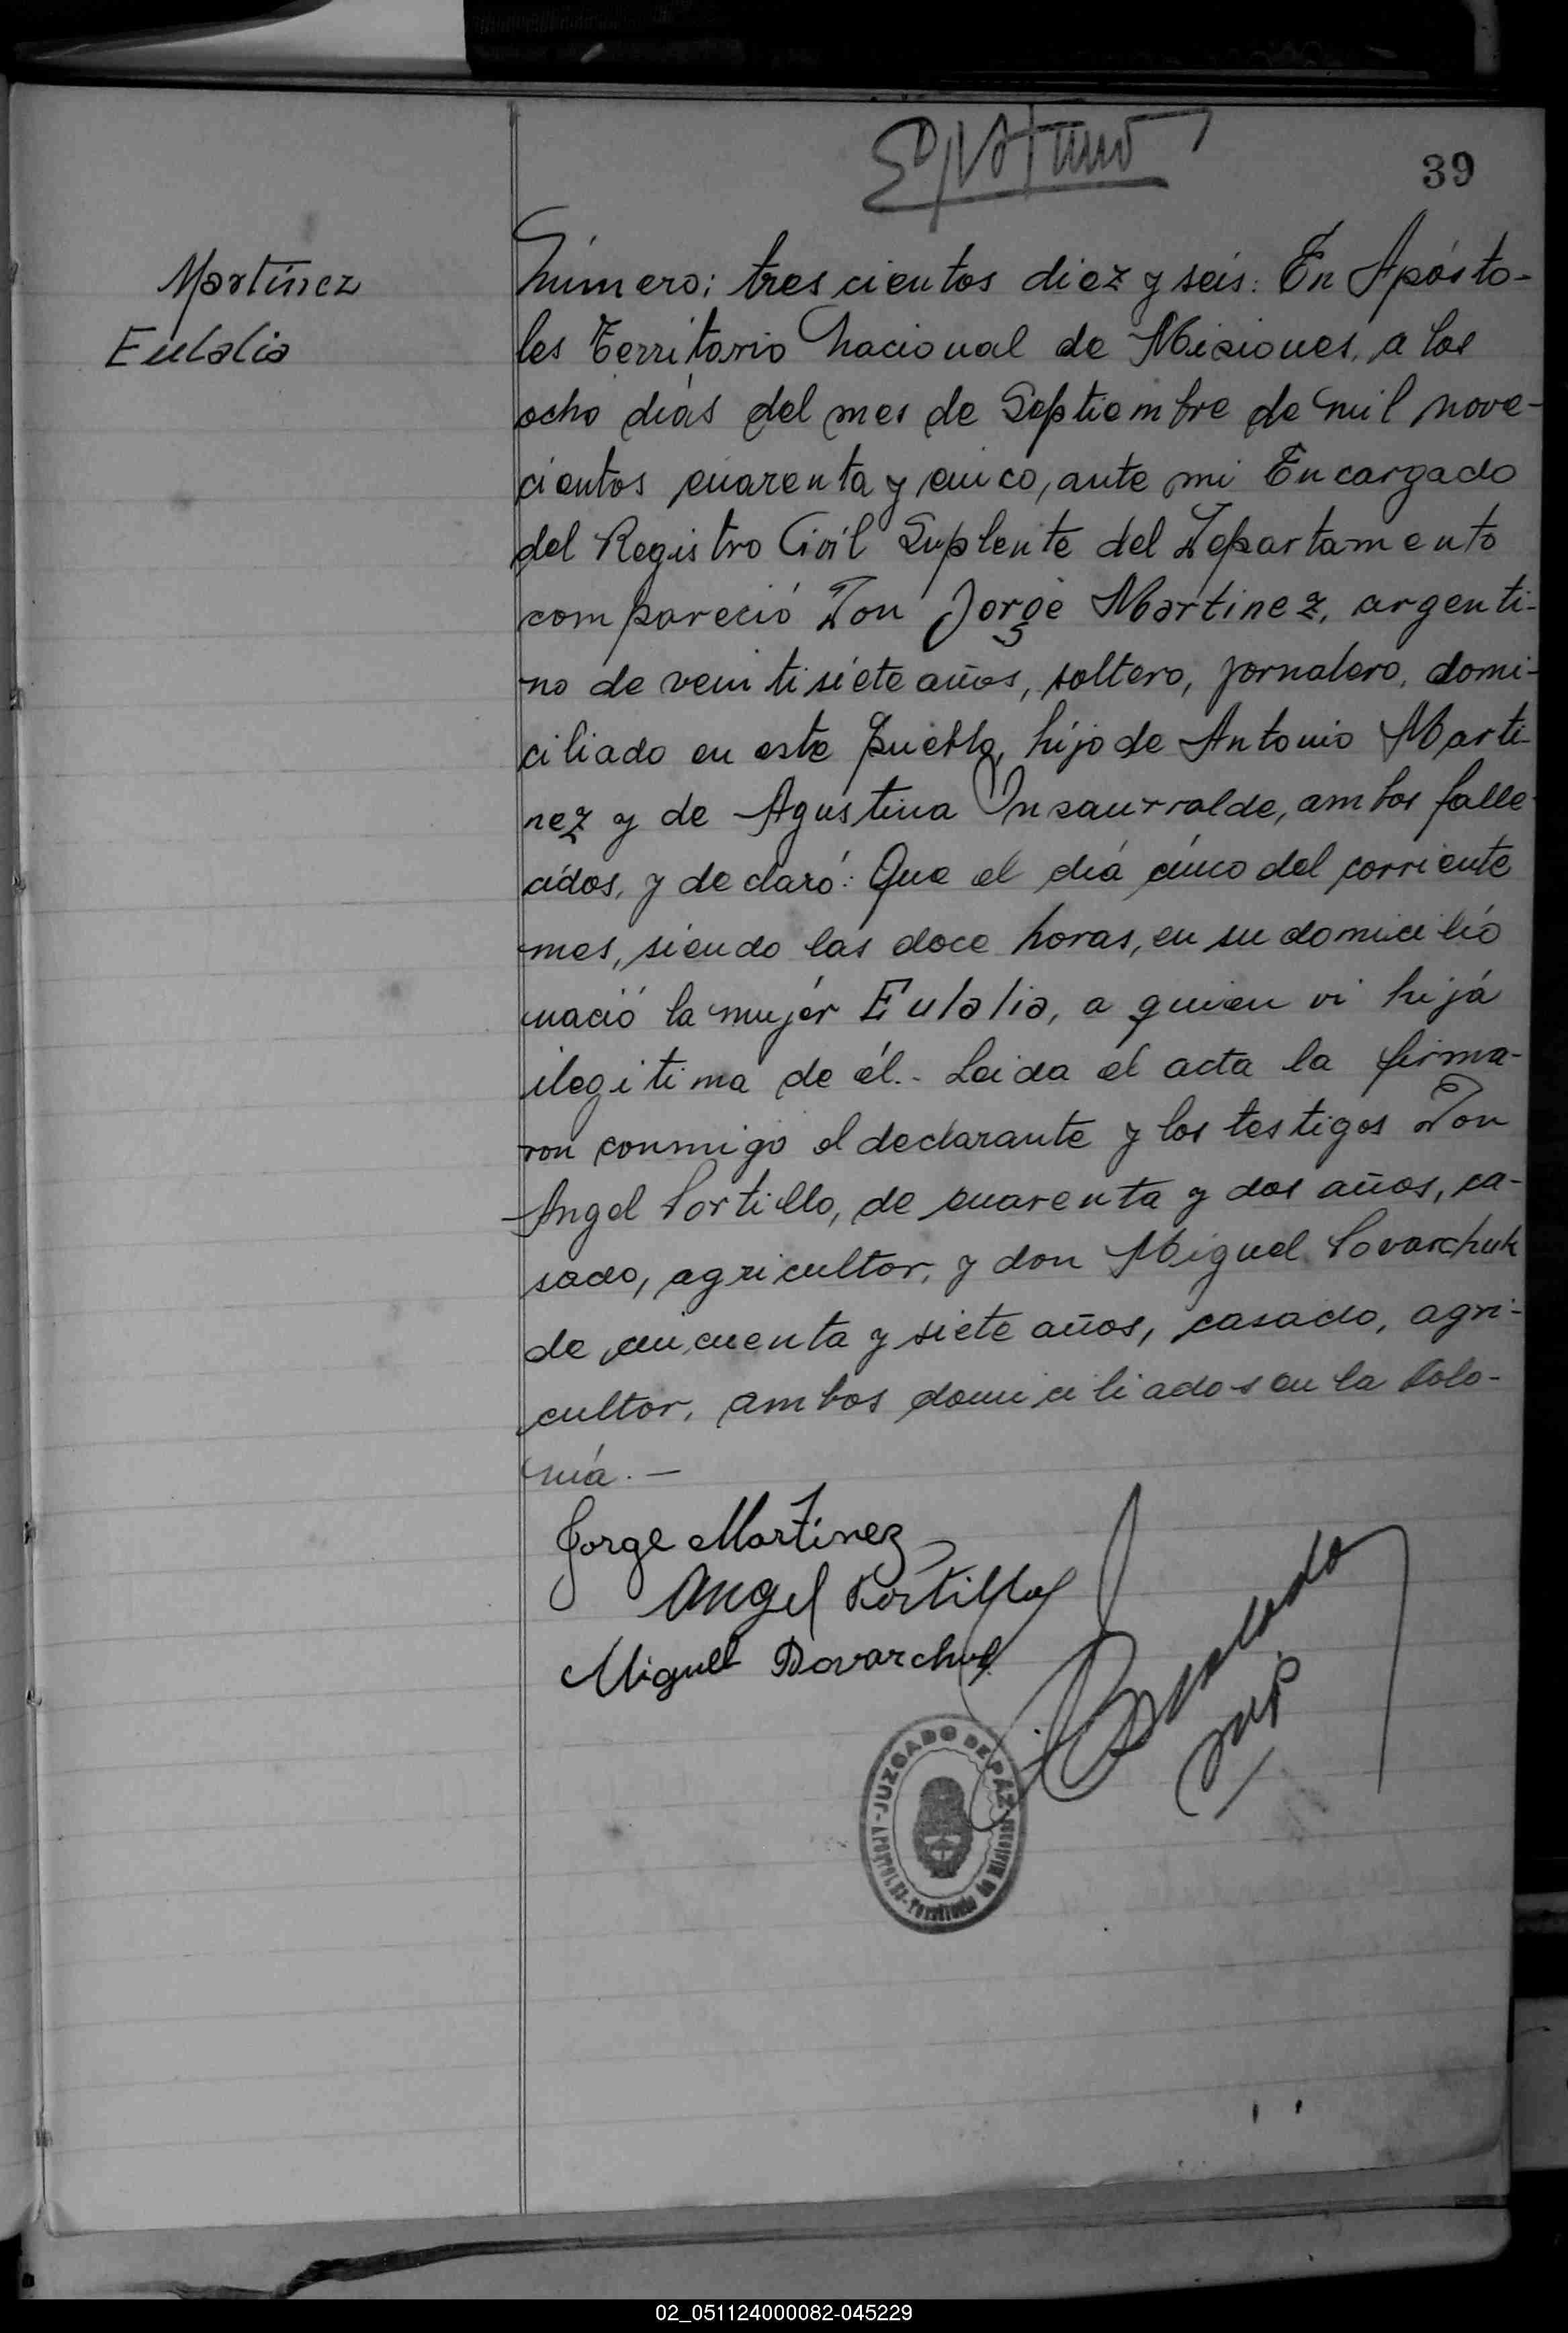 39
Martínez
Eulalia
Número: trescientos diez y seis: En Apósto-
les Territorio Nacional de Misiones, a los
ocho días del mes de Septiembre de mil nove-
cientos cuarenta y cinco, ante mi Encargado
del Registro Civil Suplente del Departamento
compareció Don Jorge Martinez, argenti-
no de veintisiete años, soltero, jornalero, domi-
ciliado en este pueblo, hijo de Antonio Marti-
nez y de Agustina Insaurralde, ambos falle-
cidos, y declaró: Que el día cinco del corriente
mes, siendo las doce horas, en su domicilio
nació la mujer Eulalia, a quien vi hija
ilegitima de él.- Leida el acta la firma-
ron conmigo el declarante y los testigos Don
Angel Portillo, de cuarenta y dos años, ca-
sado, agricultor, y don Miguel Bovarchuk
de cincuenta y siete años, casado, agri-
cultor, ambos domiciliados en la Colo-
nia.-
Jorge Martínez
Angel Portillo
Miguel Bovarchuk
Sup
JUZGADO DE PAZ
APOSTOLES - Territorio de Misiones
02_051124000082-045229